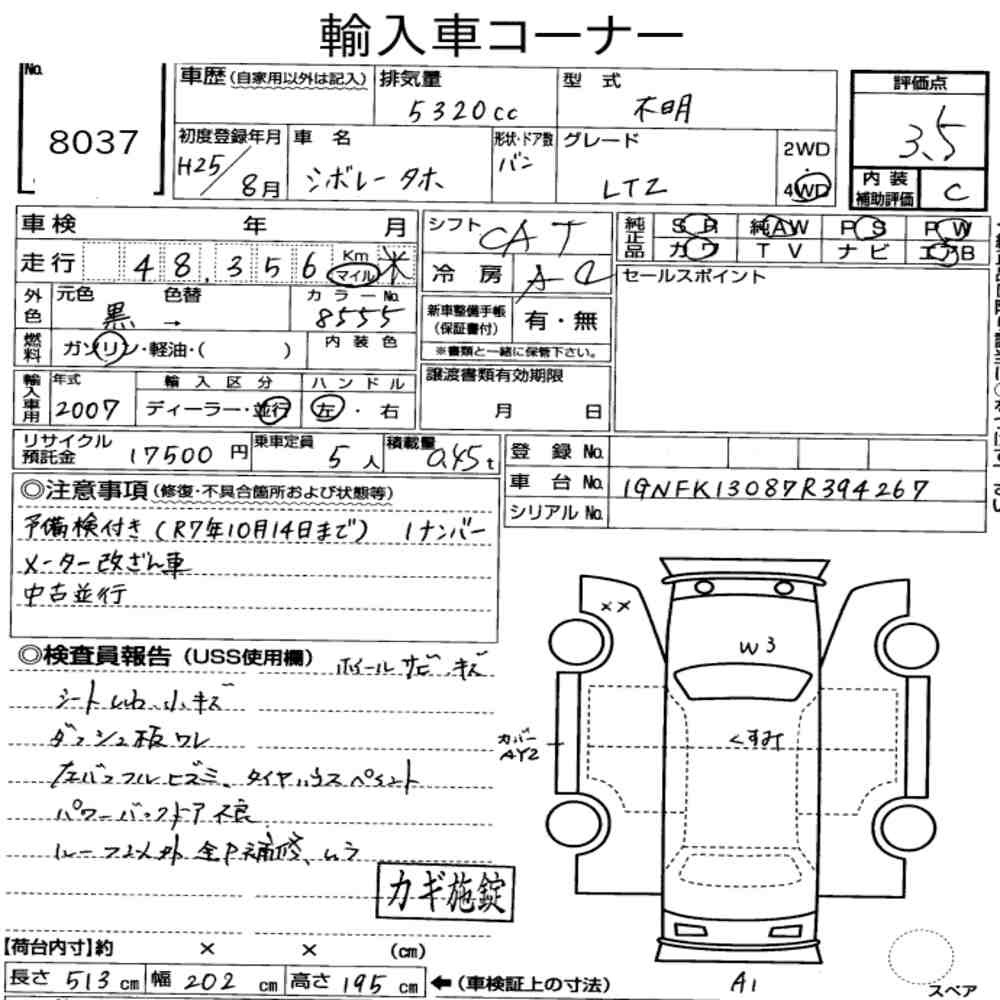 輸入車コーナー
No. 8037
車歴(自家用以外は記入) 排気量 5320cc 型式 不明
初度登録年月 H25/8月 車名 シボレータホ 形状・ドア数 バン グレード LTZ 2WD 4WD
評価点 3.5
内装補助評価 C
車検 年 月
走行 48,356 Km マイル 米
外色 元色 黒 → 色替 カラーNo. 8555
燃料 ガソリン・軽油・( ) 内装色
輸入車用 年式 2007 輸入区分 ディーラー・並行 ハンドル 左・右
シフト CAT
冷房 AC
新車整備手帳(保証書付) 有・無
※書類と一緒に保管下さい。
譲渡書類有効期限 月 日
純正品 SR 純AW PS PW
カワ TV ナビ エアB
セールスポイント
リサイクル預託金 17500円 乗車定員 5人 積載量 0.45t
登録No.
車台No. 1GNFK13087R394267
シリアルNo.
◎注意事項(修復・不具合箇所および状態等)
予備検付き(R7年10月14日まで) 1ナンバー
メーター改ざん車
中古並行
◎検査員報告(USS使用欄) ホイールサビ、キズ
シートしわ、小キズ
ダッシュ板ワレ
左バッフルヒズミ、タイヤハウスペイント
パワーバックドア不良
ルーフ以外全P補修、ムラ
カギ施錠
XX
W3
くすみ
カバー
AY2
A1
スペア
【荷台内寸】約 × × (cm)
長さ 513cm 幅 202cm 高さ 195cm ←(車検証上の寸法)